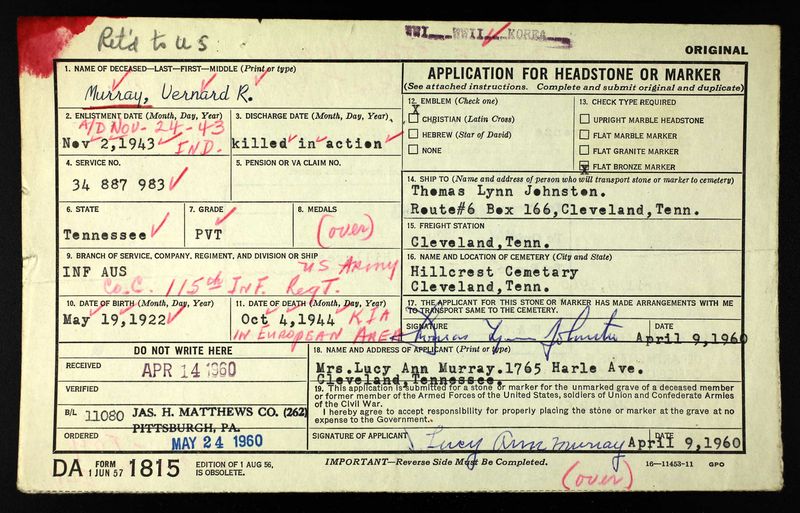 Ret'd to US
WWI WWII KOREA
ORIGINAL
1. NAME OF DECEASED—LAST—FIRST—MIDDLE (Print or type)
Murray, Vernard R.
2. ENLISTMENT DATE (Month, Day, Year)
A/D NOV- 24-43
Nov 2,1943 IND.
3. DISCHARGE DATE (Month, Day, Year)
killed in action
4. SERVICE NO.
34 887 983
5. PENSION OR VA CLAIM NO.
6. STATE
Tennessee
7. GRADE
PVT
8. MEDALS
(over)
9. BRANCH OF SERVICE, COMPANY, REGIMENT, AND DIVISION OR SHIP
INF AUS US Army
Co. C. 115th INF. Regt.
10. DATE OF BIRTH (Month, Day, Year)
May 19,1922
11. DATE OF DEATH (Month, Day, Year)
Oct 4,1944 KIA
IN EUROPEAN AREA
DO NOT WRITE HERE
RECEIVED
APR 14 1960
VERIFIED
B/L 11080 JAS. H. MATTHEWS CO. (262)
PITTSBURGH, PA.
ORDERED
MAY 24 1960
APPLICATION FOR HEADSTONE OR MARKER
(See attached instructions. Complete and submit original and duplicate)
12. EMBLEM (Check one)
X
CHRISTIAN (Latin Cross)
HEBREW (Star of David)
NONE
13. CHECK TYPE REQUIRED
UPRIGHT MARBLE HEADSTONE
FLAT MARBLE MARKER
FLAT GRANITE MARKER
X FLAT BRONZE MARKER
14. SHIP TO (Name and address of person who will transport stone or marker to cemetery)
Thomas Lynn Johnston.
Route#6 Box 166,Cleveland,Tenn.
15. FREIGHT STATION
Cleveland,Tenn.
16. NAME AND LOCATION OF CEMETERY (City and State)
Hillcrest Cemetary
Cleveland,Tenn.
17. THE APPLICANT FOR THIS STONE OR MARKER HAS MADE ARRANGEMENTS WITH ME
TO TRANSPORT SAME TO THE CEMETERY.
SIGNATURE DATE
Thomas Lynn Johnston April 9,1960
18. NAME AND ADDRESS OF APPLICANT (Print or type)
Mrs.Lucy Ann Murray.1765 Harle Ave.
Cleveland,Tennessee.
19. This application is submitted for a stone or marker for the unmarked grave of a deceased member
or former member of the Armed Forces of the United States, soldiers of Union and Confederate Armies
of the Civil War.
I hereby agree to accept responsibility for properly placing the stone or marker at the grave at no
expense to the Government.
SIGNATURE OF APPLICANT DATE
Lucy Ann Murray April 9,1960
DA FORM 1 JUN 57 1815
EDITION OF 1 AUG 56,
IS OBSOLETE.
IMPORTANT—Reverse Side Must Be Completed.
(over)
16—11453-11 GPO